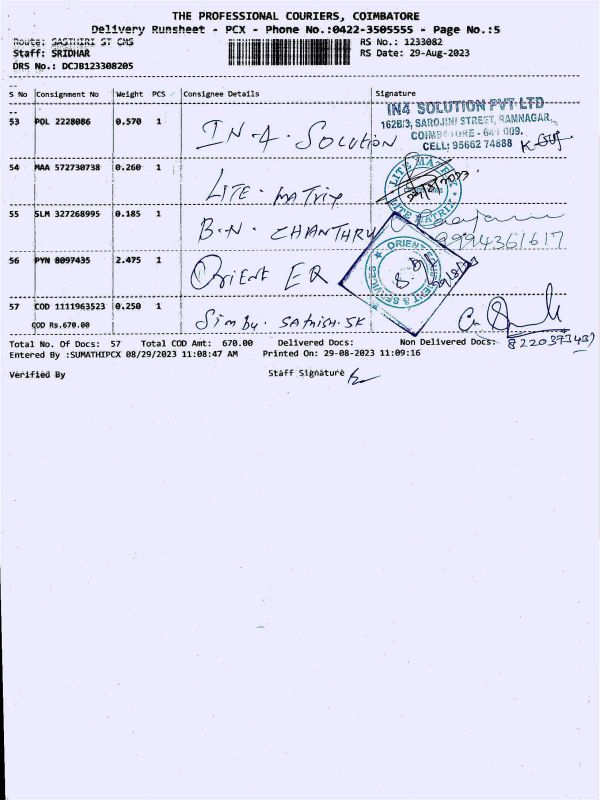 THE PROFESSIONAL COURIERS, COIMBATORE
Delivery Runsheet - PCX - Phone No.:0422-3505555 - Page No.:5
Route: SASTHIRI ST CMS
RS No.: 1233082
Staff: SRIDHAR
RS Date: 29-Aug-2023
DRS No.: DCJB123308205
S No Consignment No Weight PCS Consignee Details Signature
53 POL 2228086 0.570 1 IN-4. SOLUTION
IN4 SOLUTION PVT LTD
162B/3, SAROJINI STREET, RAMNAGAR,
COIMBATORE - 641 009.
CELL: 95662 74888
54 MAA 572730738 0.260 1 LITE. MATRIX
LITE MATRIX
LITE MATRIX
55 SLM 327268995 0.185 1 B.N. CHANTHRU
9994361617
56 PYN 8097435 2.475 1 ORIENT EQ
ORIENT EQUIPMENT & SERVICES
57 COD 1111963523 0.250 1 Simby. SATHISH. SK
COD Rs.670.00
Total No. Of Docs: 57 Total COD Amt: 670.00 Delivered Docs: Non Delivered Docs:
Entered By :SUMATHIPCX 08/29/2023 11:08:47 AM Printed On: 29-08-2023 11:09:16
Verified By Staff Signature